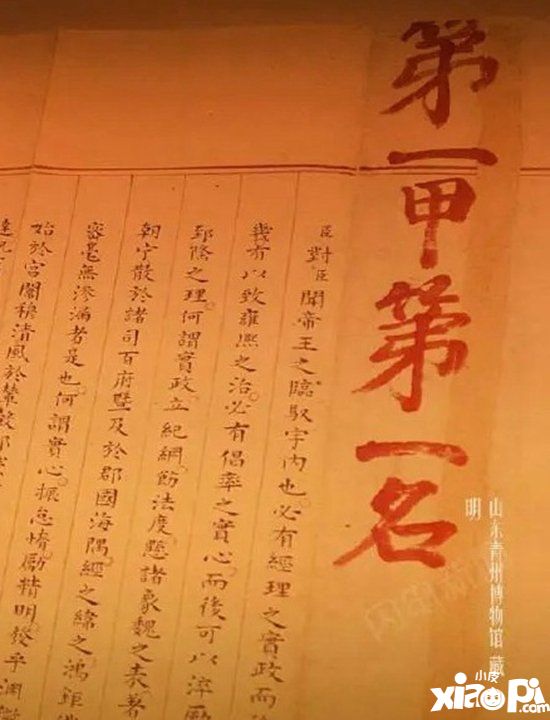 第一甲第一名
臣對臣聞帝王之臨馭宇內也必有經理之實政而
幾有以致雍熙之治必有倡率之實心而後可以淬勵
郅隆之理何謂實政立紀綱飭法度懸諸象魏之表著
朝宁散於諸司百府暨及於郡國海隅經之緯之鴻鉅
審毫無滲漏者是也何謂實心振怠惰勵精明發乎淵
始於宮闈穆清風於輦轂邦
山东青州博物馆 藏
明
小皮
xiaopi.com